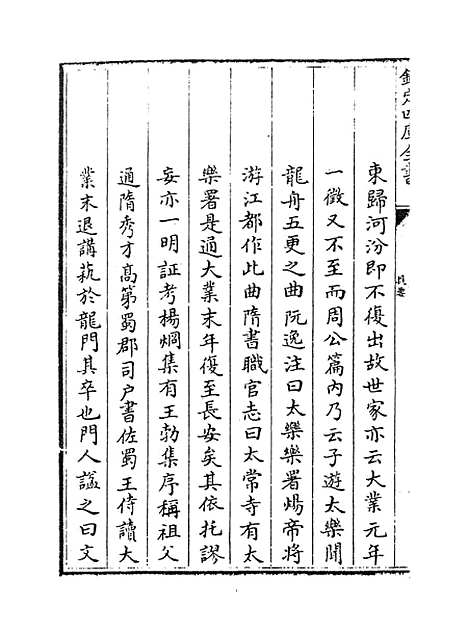 欽定四庫全書
提要
東歸河汾即不復出故世家亦云大業元年
一徵又不至而周公篇内乃云子遊太樂聞
龍舟五更之曲阮逸注曰太樂樂署煬帝將
游江都作此曲隋書職官志曰太常寺有太
樂署是通大業末年復至長安矣其依托謬
妄亦一明証考楊烱集有王勃集序稱祖父
通隋秀才髙第蜀郡司户書佐蜀王侍讀大
業末退講蓺於龍門其卒也門人諡之曰文